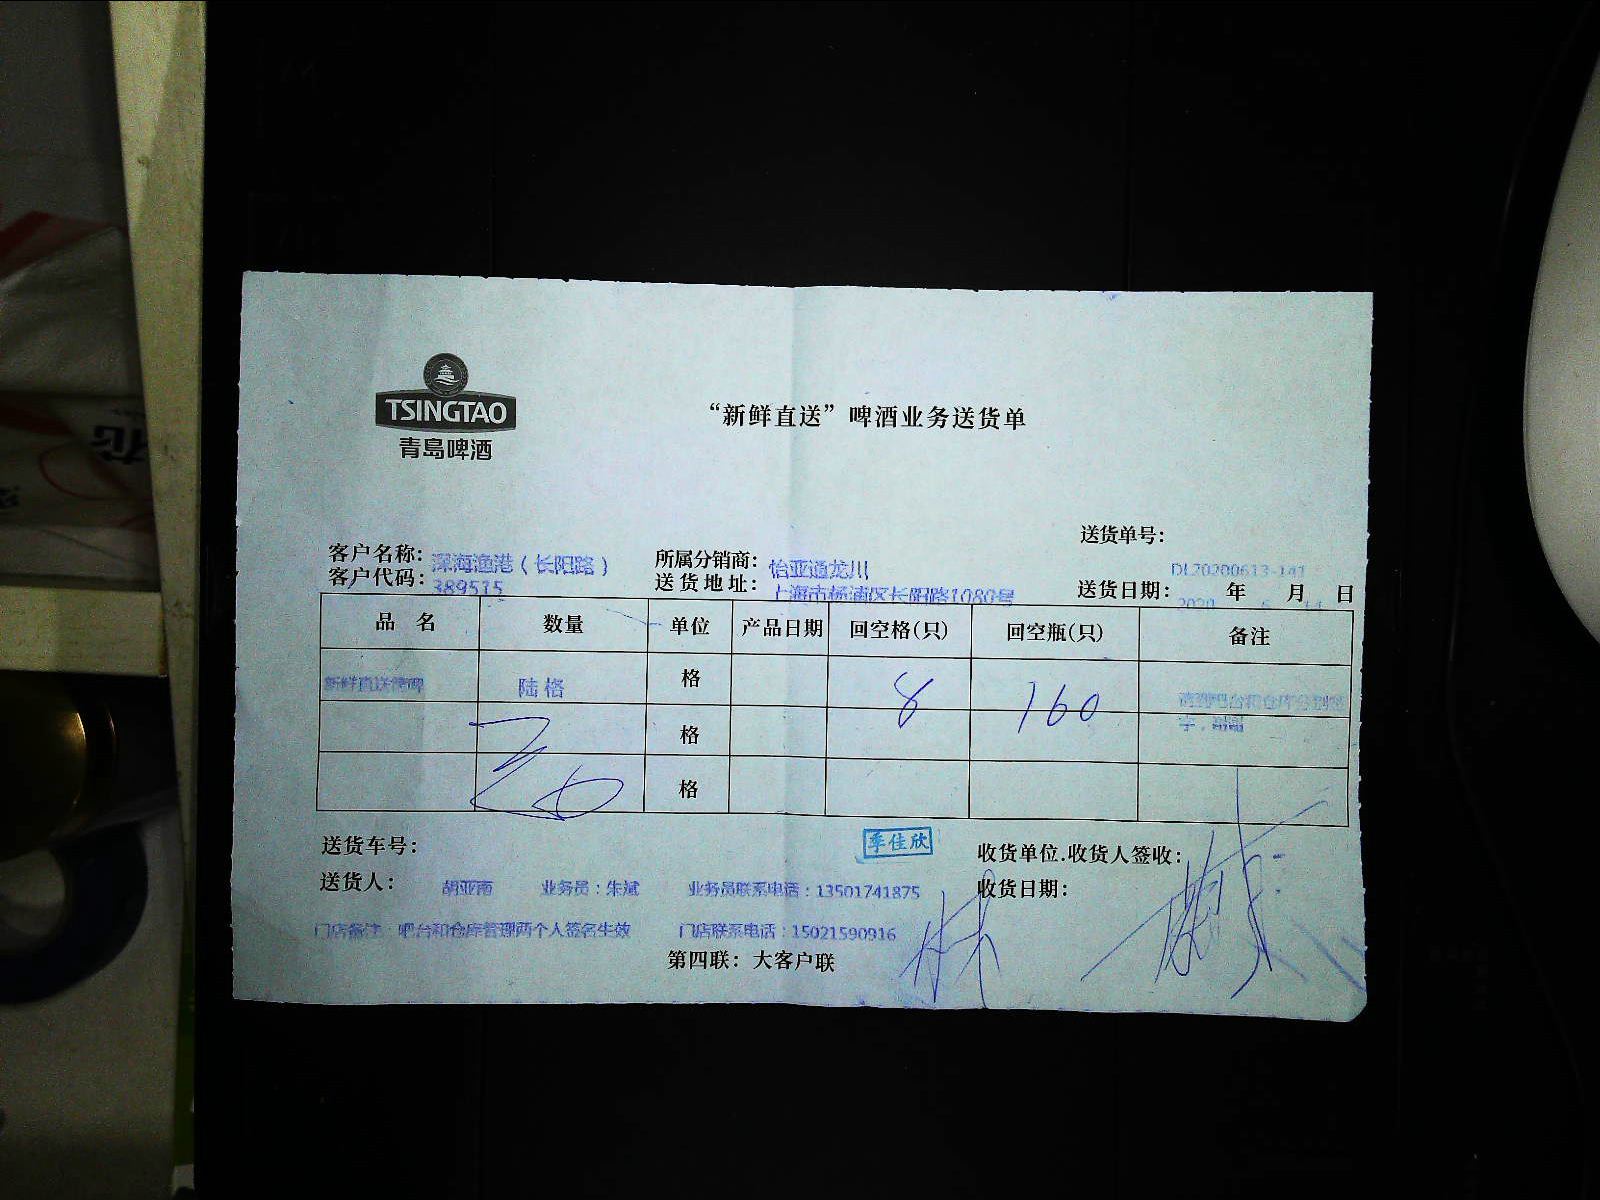 TSINGTAO
青岛啤酒
“新鲜直送”啤酒业务送货单
送货单号：
DL20200613-141
客户名称：深海渔港（长阳路） 所属分销商：怡亚通龙川
客户代码：389515 送货地址：上海市杨浦区长阳路1080号 送货日期：2020年 6月 14日
品 名 数量 单位 产品日期 回空格(只) 回空瓶(只) 备注
新鲜直送纯啤 陆格 格 8 160 请到吧台和仓库分别签
字，谢谢
格
格
送货车号： 季佳欣 收货单位.收货人签收：
送货人： 胡亚南 业务员：朱斌 业务员联系电话：13501741875 收货日期：
门店备注：吧台和仓库管理两个人签名生效 门店联系电话：15021590916
第四联：大客户联